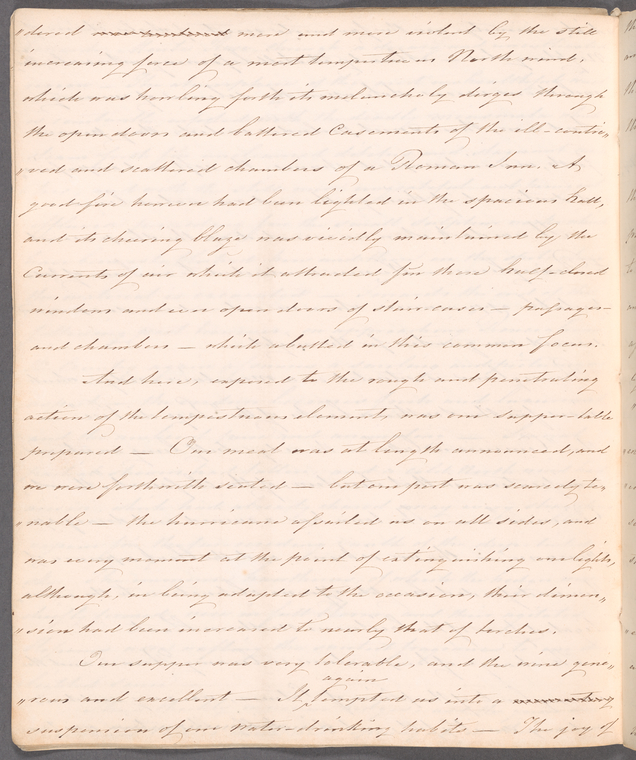 "dered more and more violent by the still
increasing force of a most tempestuous North wind,
which was howling forth its melancholy dirges through
the open doors and battered casements of the ill-contri"
"ved and scattered chambers of a Roman Inn. A
good fire however had been lighted in the spacious hall,
and its cheering blaze was vividly maintained by the
currents of air which it attracted from these half-closed
windows and ever open doors of stair-cases — passages —
and chambers — which abutted in this common focus.
And here, exposed to the rough and penetrating
action of the tempestuous element, was our supper-table
prepared — Our meal was at length announced, and
we were forthwith seated — but our post was scarcely te"
"nable — the hurricane assailed us on all sides, and
was every moment at the point of extinguishing our lights,
although, in being adapted to the occasion, their dimen"
"sion had been increased to nearly that of torches.
Our supper was very tolerable, and the wine gene"
again
"rous and excellent — It tempted us into a
suspension of our water-drinking habits — The joy of